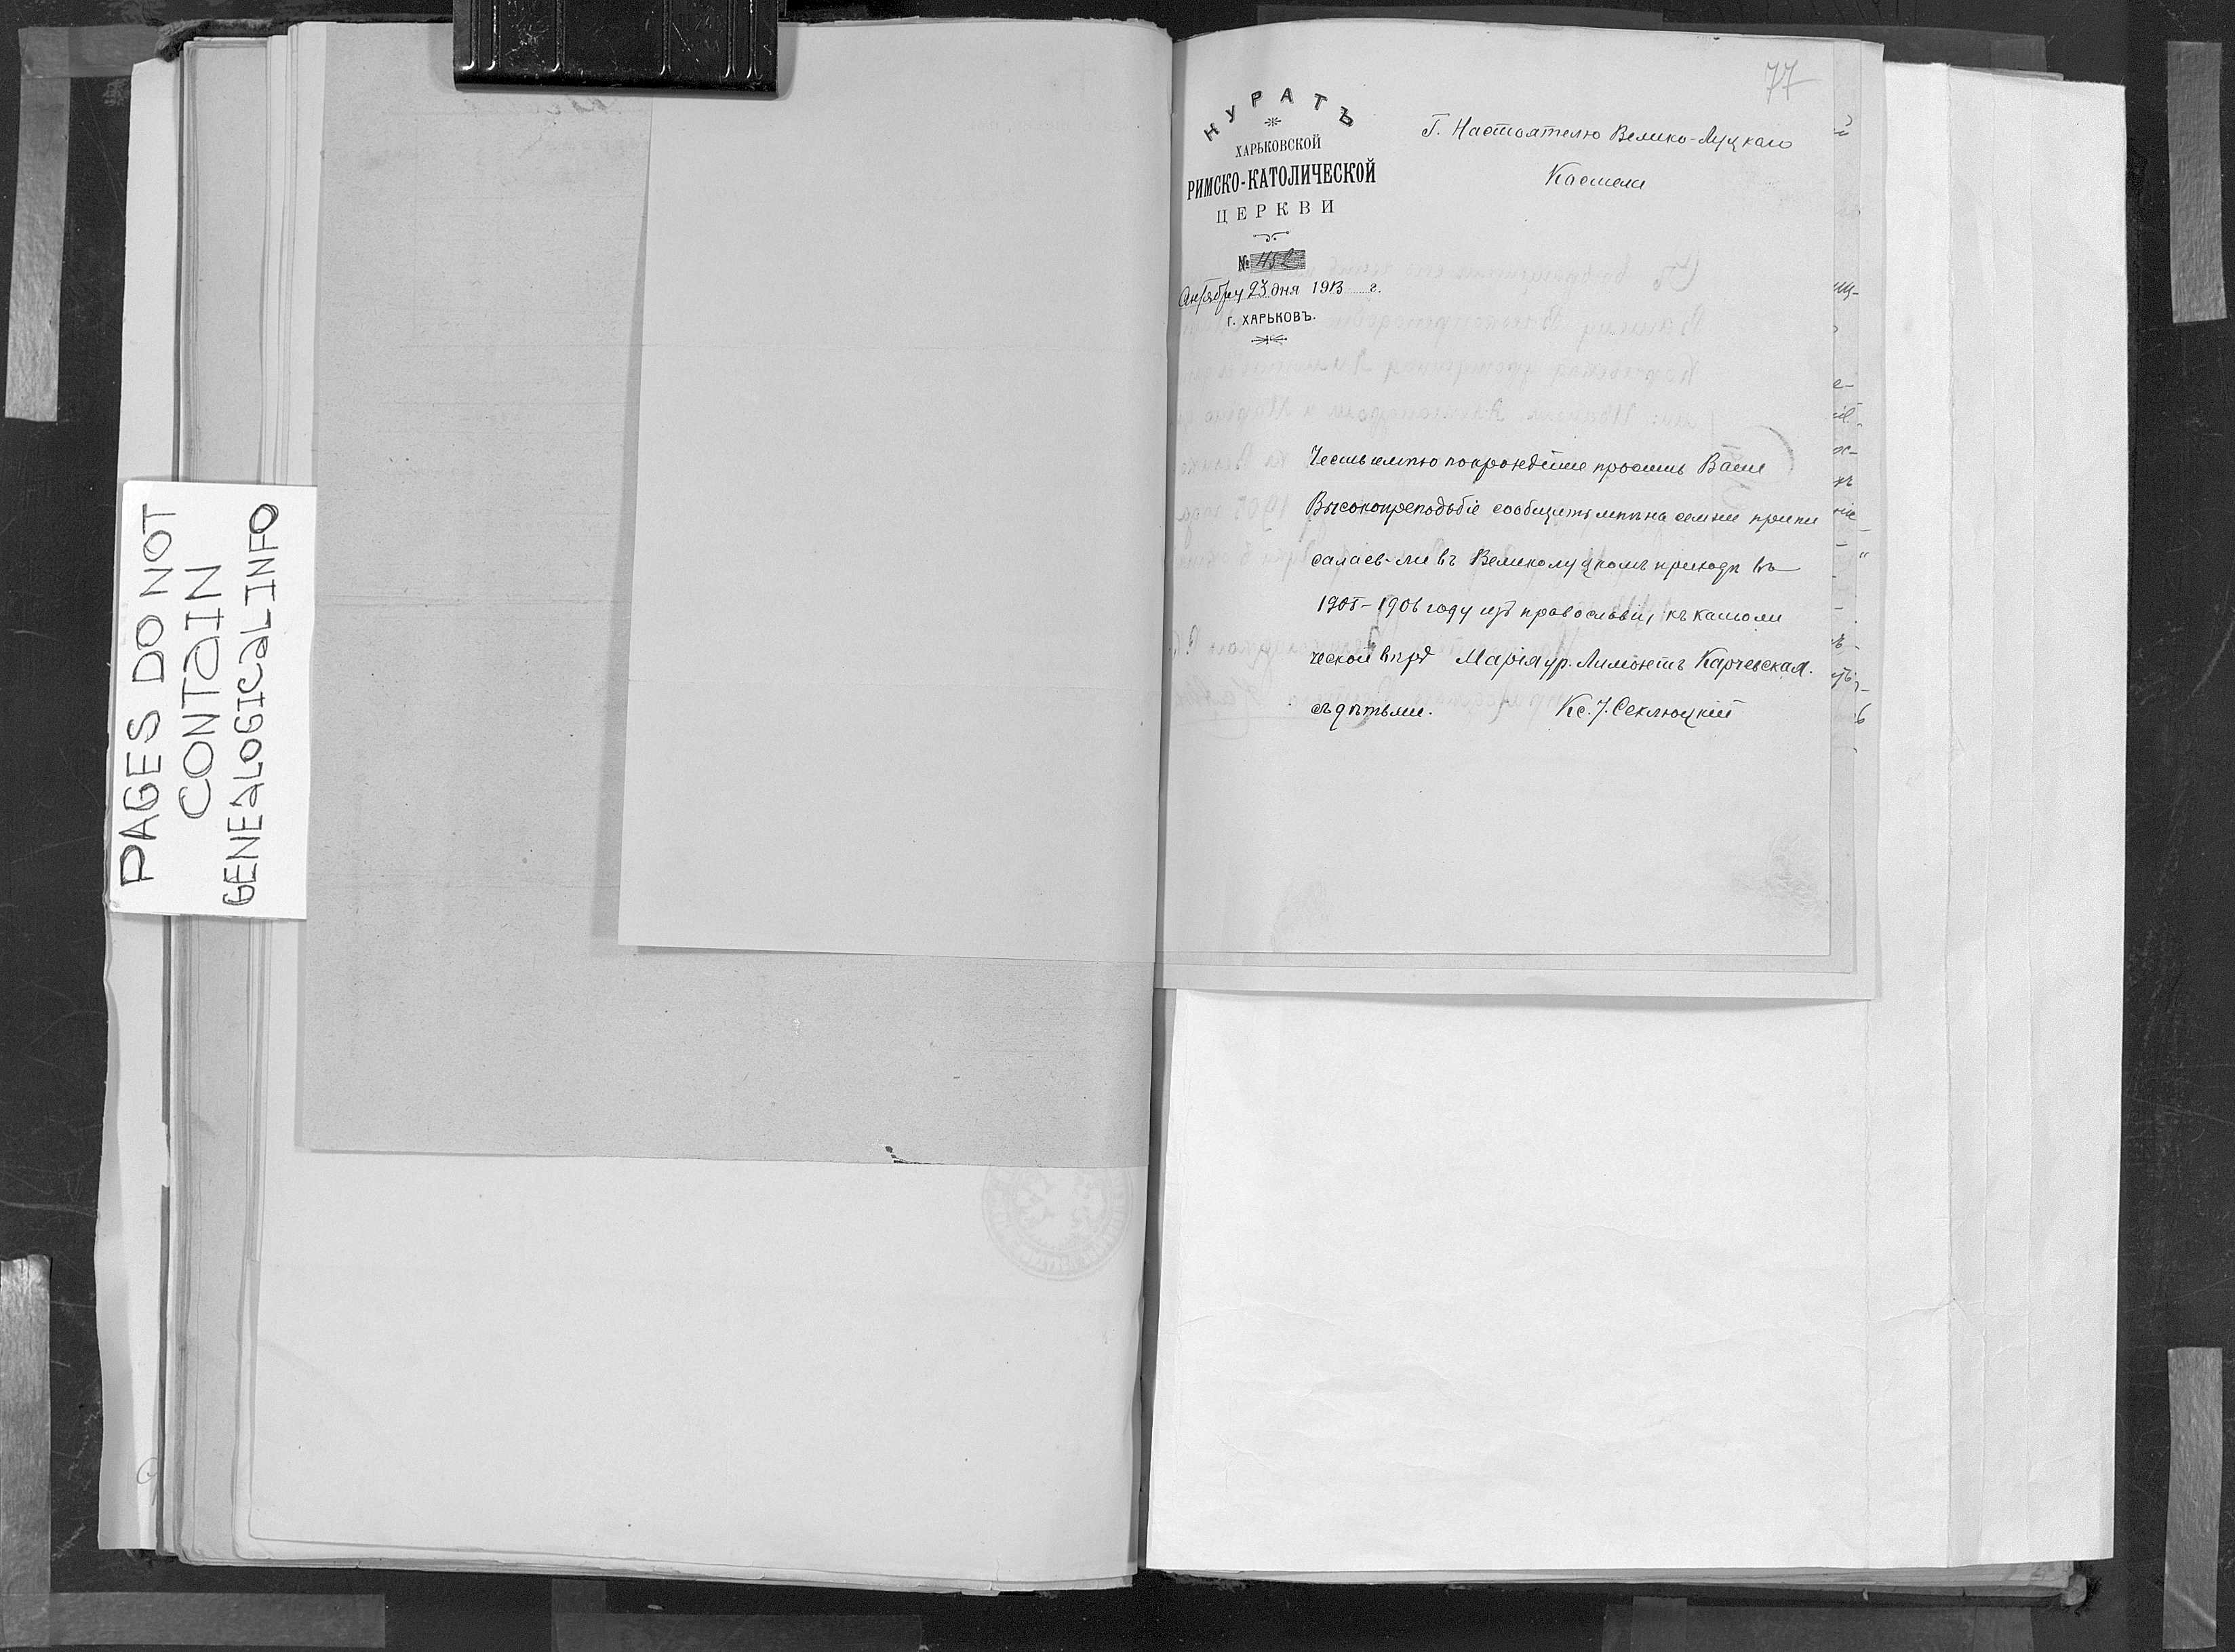 PAGES DO NOT
CONTAIN
GENEALOGICAL INFO
77
КУРАТЪ
ХАРЬКОВСКОЙ
РИМСКО-КАТОЛИЧЕСКОЙ
ЦЕРКВИ
№ 452
Октября 23 дня 1913 г.
г. ХАРЬКОВЪ.
Г. Настоятелю Велико-Луцкаго
Костела
Честь имѣю покорнѣйше просить Ваше
Высокопреподобіе сообщить мнѣ на семже припи
салась-ли въ Великолуцкомъ приходѣ въ
1905-1906 году изъ православія къ католи
ческой вѣрѣ Марія ур. Лимонтъ Карчевская.
съ дѣтьми. Кс. І. Секлюцкій